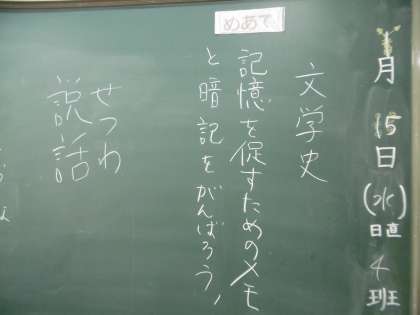 月15日(水)日直4班
めあて
文学史
記憶を促すためのメモ
と暗記をがんばろう!
せつわ
説話